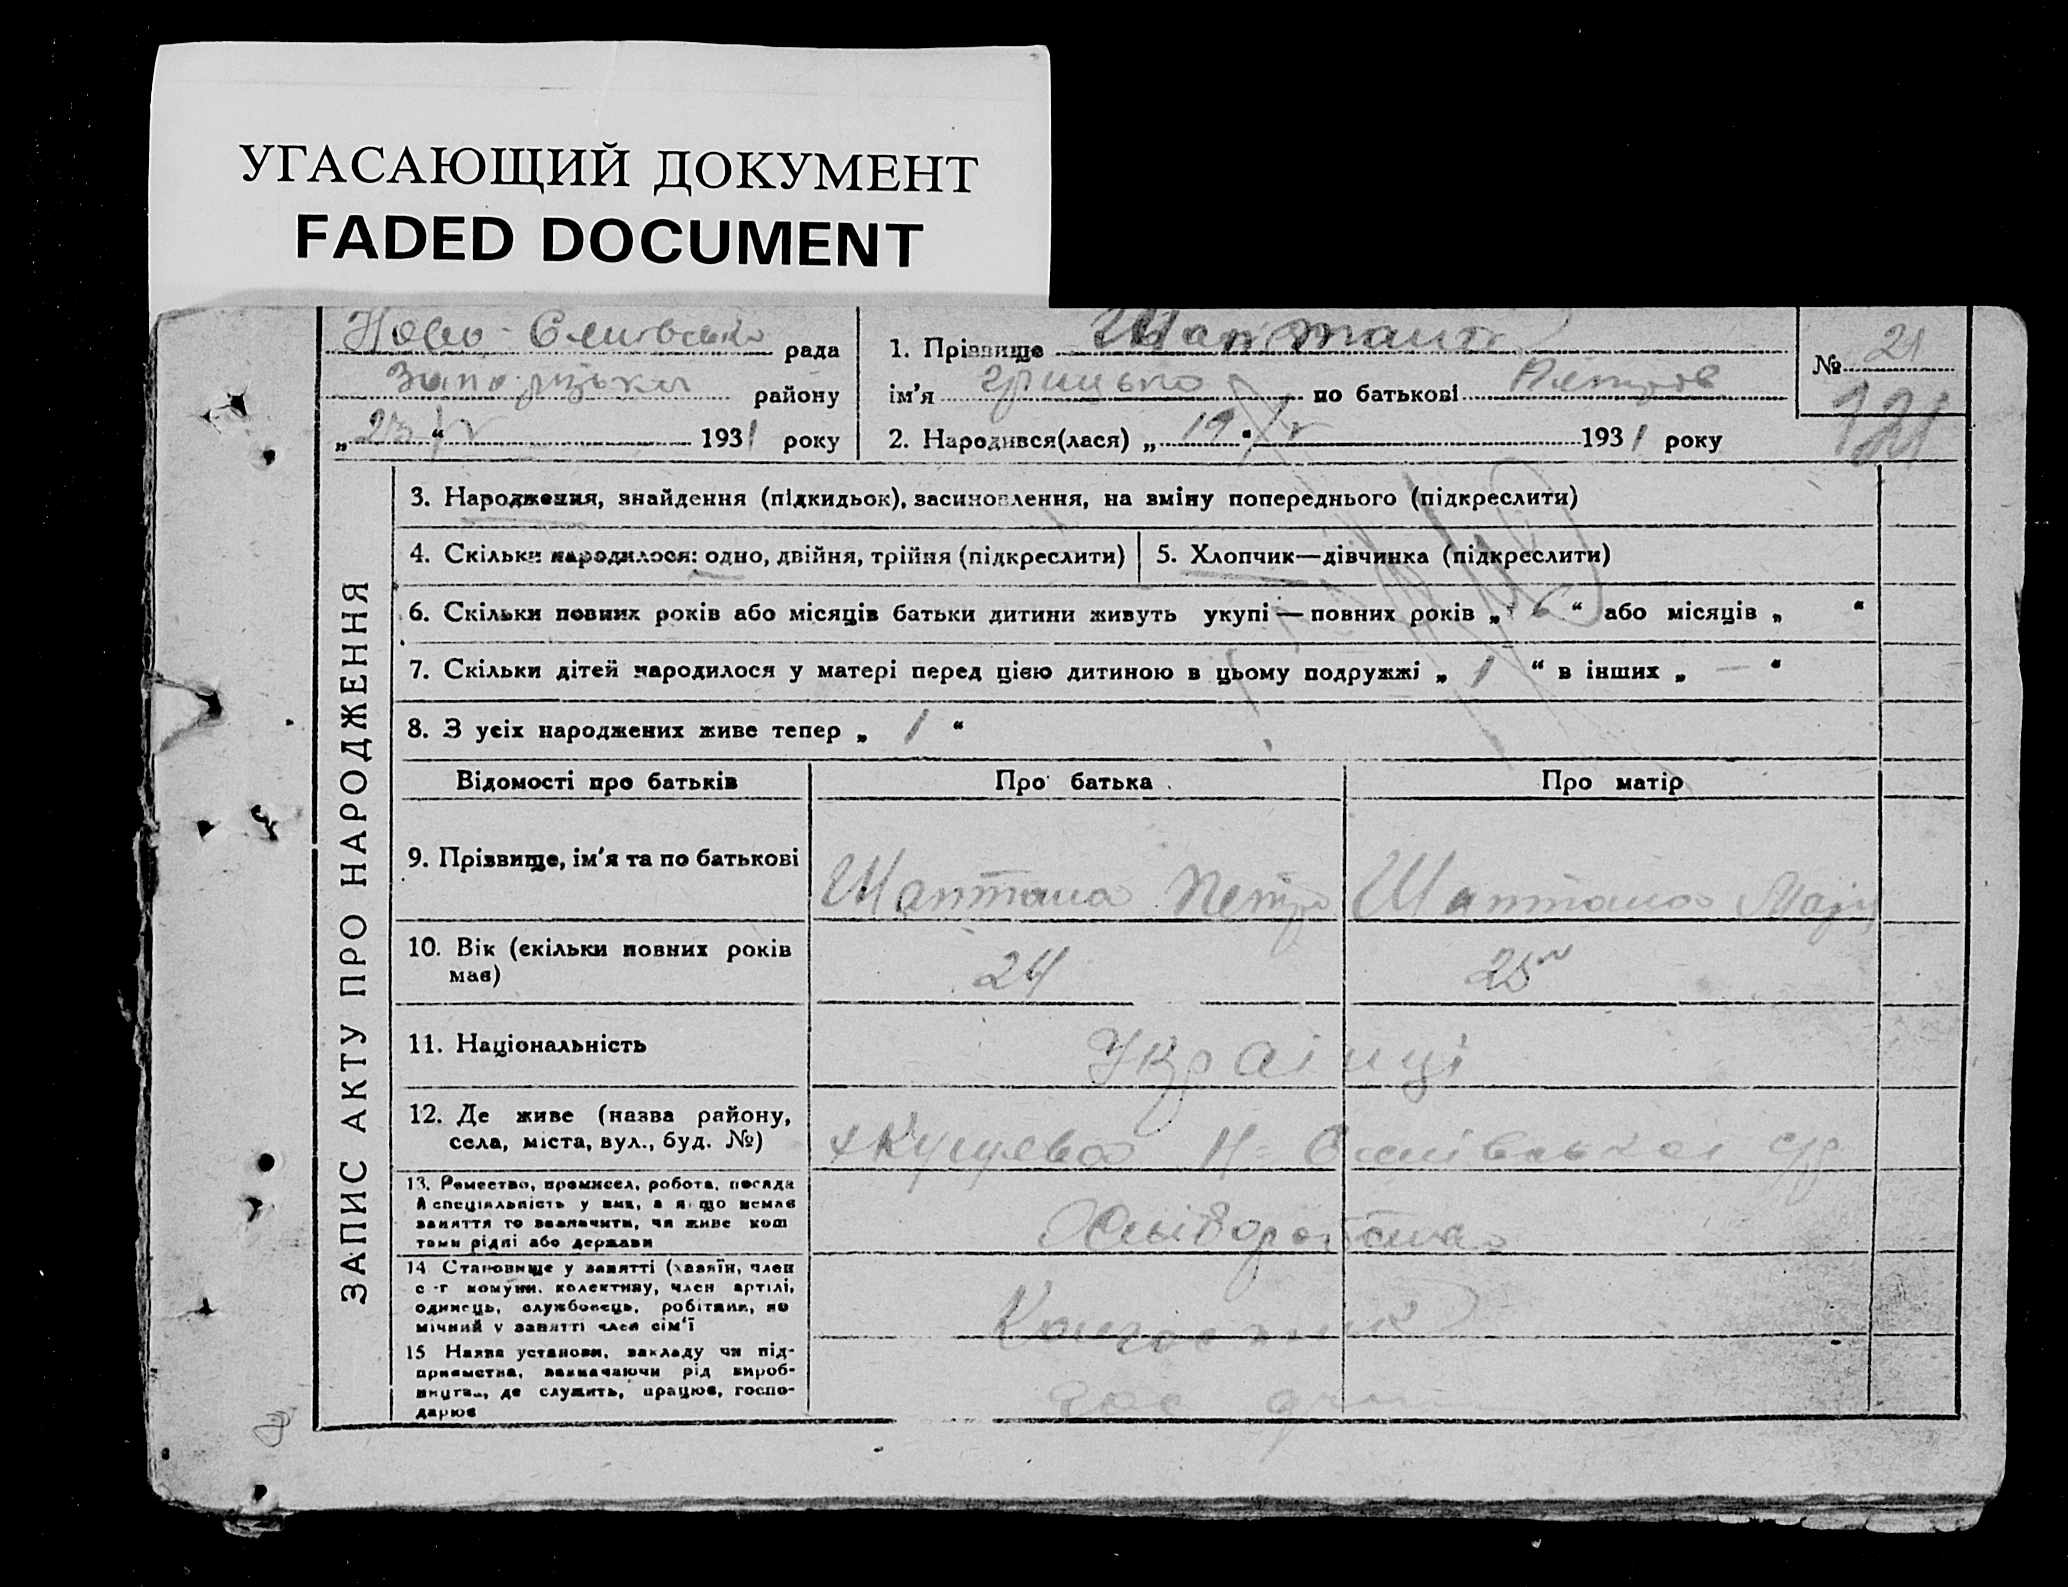 УГАСАЮЩИЙ ДОКУМЕНТ
FADED DOCUMENT
Ново - рада
району
„23“ V 1931 року
1. Прізвище Шаптала
ім'я Грицько по батькові Петров
2. Народився(лася) „19“ V 1931 року
№ 21
121
ЗАПИС АКТУ ПРО НАРОДЖЕННЯ
3. Народження, знайдення (підкидьок), засиновлення, на зміну попереднього (підкреслити)
4. Скільки народилося: одно, двійня, трійня (підкреслити)
5. Хлопчик—дівчинка (підкреслити)
6. Скільки повних років або місяців батьки дитини живуть укупі — повних років „6“ або місяців „ “
7. Скільки дітей народилося у матері перед цією дитиною в цьому подружжі „1“ в інших „—“
8. З усіх народжених живе тепер „1“
Відомості про батьків
Про батька
Про матір
9. Прізвище, ім'я та по батькові
Шаптала Петро
Шаптала
10. Вік (скільки повних років має)
24
25
11. Національність
Українці
12. Де живе (назва району,
села, міста, вул., буд. №)
13. Ремество, промисел, робота, посада
й спеціяльність у них, а якщо немає
заняття то зазначити, чи живе кош
тами рідні або держави
Хліборобства
14 Становище у занятті (хазяїн, член
с-г комуни, колективу, член артілі,
одинець, службовець, робітник, по
мічний у занятті член сім'ї
Колгоспник
15 Назва установи, закладу чи під-
приємства, зазначаючи рід вироб-
ництва, де служить, працює, госпо-
дарює